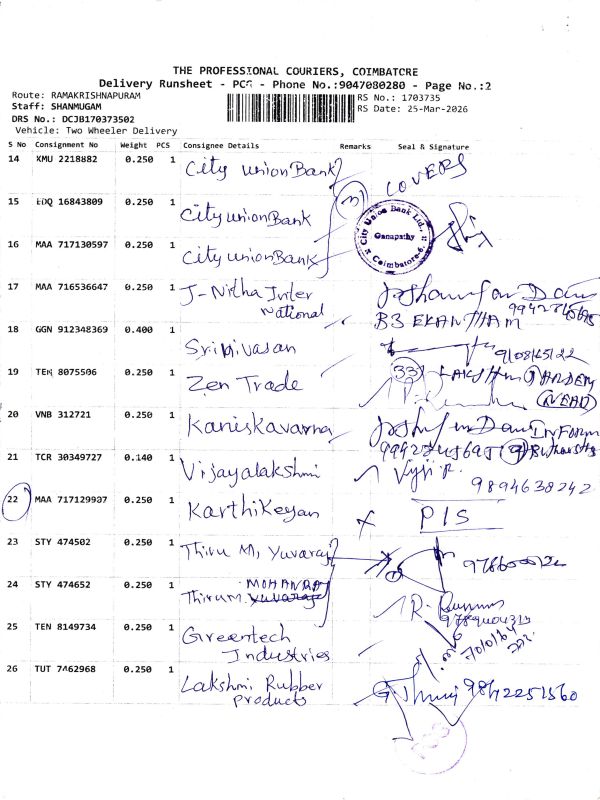 THE PROFESSIONAL COURIERS, COIMBATORE
Delivery Runsheet - PCG - Phone No.:9047080280 - Page No.:2
Route: RAMAKRISHNAPURAM
RS No.: 1703735
Staff: SHANMUGAM
RS Date: 25-Mar-2026
DRS No.: DCJB170373502
Vehicle: Two Wheeler Delivery
S No Consignment No Weight PCS Consignee Details Remarks Seal & Signature
14 KMU 2218882 0.250 1 City Union Bank
COVERS
15 EDQ 16843809 0.250 1 City Union Bank
City Union Bank Ltd.,
Ganapathy
Coimbatore-6.
16 MAA 717130597 0.250 1 City Union Bank
17 MAA 716536647 0.250 1 J-Nitha Inter
National
B3 EKANTHAM
18 GGN 912348369 0.400 1 Srinivasan
19 TEN 8075506 0.250 1 Zen Trade
33
20 VNB 312721 0.250 1 Kaniskavarna
21 TCR 30349727 0.140 1 Vijayalakshmi
9894638242
22 MAA 717129907 0.250 1 Karthikeyan
X PIS
23 STY 474502 0.250 1 Thiru M, Yuvaraj
24 STY 474652 0.250 1 Thirum. MOHANRAJ
25 TEN 8149734 0.250 1 Greentech
Industries
26 TUT 7462968 0.250 1 Lakshmi Rubber
products
9842251560